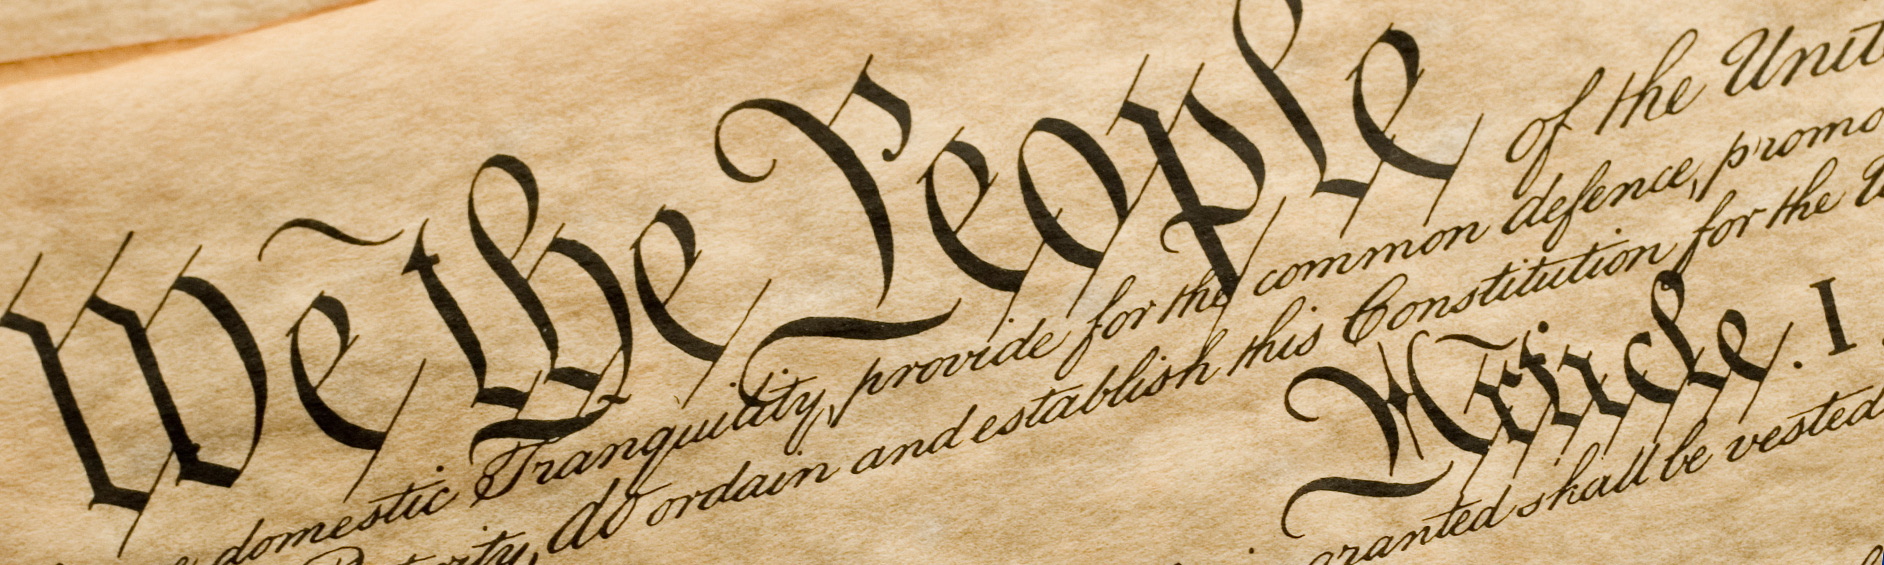 We the People of the Unit
domestic Tranquility, provide for the common defence, promo
Posterity, do ordain and establish this Constitution for the U
Article. I.
granted shall be vested